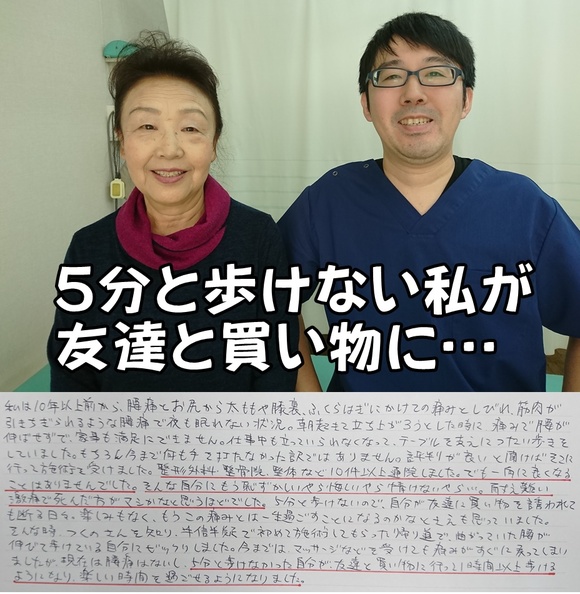 5分と歩けない私が
友達と買い物に…
私は10年以上前から、腰痛とお尻から太ももや膝裏、ふくらはぎにかけての痛みとしびれ、筋肉が
引きちぎられるような腰痛で夜も眠れない状況。朝起きて立ち上がろうとした時に痛みで腰が
伸ばせずで、家事も満足にできません。仕事中も立っていられなくなって、テーブルを支えにつたい歩きを
していました。もちろん今まで何も手て打たなかった訳ではありません。評判が良いと聞けばそこに
行って施術を受けました。整形外科、整骨院、整体など10件以上通院しました。でも一向に良くなる
ことはありませんでした。そんな自分にもう恥ずかしいやら悔しいやら情けないやら…。耐え難い
激痛で死んだ方がマシかなと思うほどでした。5分と歩けないので、自分が友達に買い物を誘われて
も断る日々、楽しみもなく、もうこの痛みとは一生過ごすことになるのかなとさえも思っていました。
そんな時、つくのさんを知り、半信半疑で初めて施術してもらった帰り道で、曲がっていた腰が
伸びて歩けている自分にビックリしました。今までは、マッサージなどを受けても痛みがすぐに戻ってしまい
ましたが、現在は腰痛はないし、5分と歩けなかった自分が、友達と買い物に行って1時間以上歩ける
ようになり、楽しい時間を過ごせるようになりました。